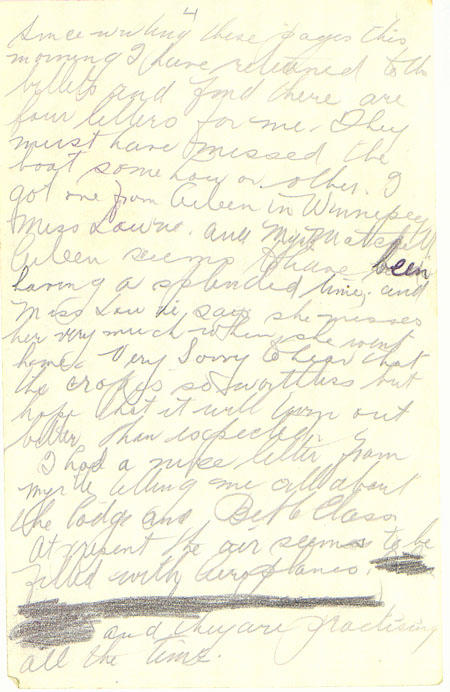 4
Since writing these pages this
morning I have returned to the
billets and find there are
four letters for me. They
must have missed the
boat some how or other. I
got one from Aileen in Winnipeg
Miss Lowrie. and Myrtle
Aileen seems to have been
having a splended time. and
Miss Lowrie, says she misses
her very much when she went
home. Very Sorry to hear that
the crop is so worthless but
hope that it will turn out
better than expected.
I had a nice letter from
Myrtle telling me all about
the lodge and Class
At present the air seems to be
filled with Aeroplanes.
and they are practising
all the time.